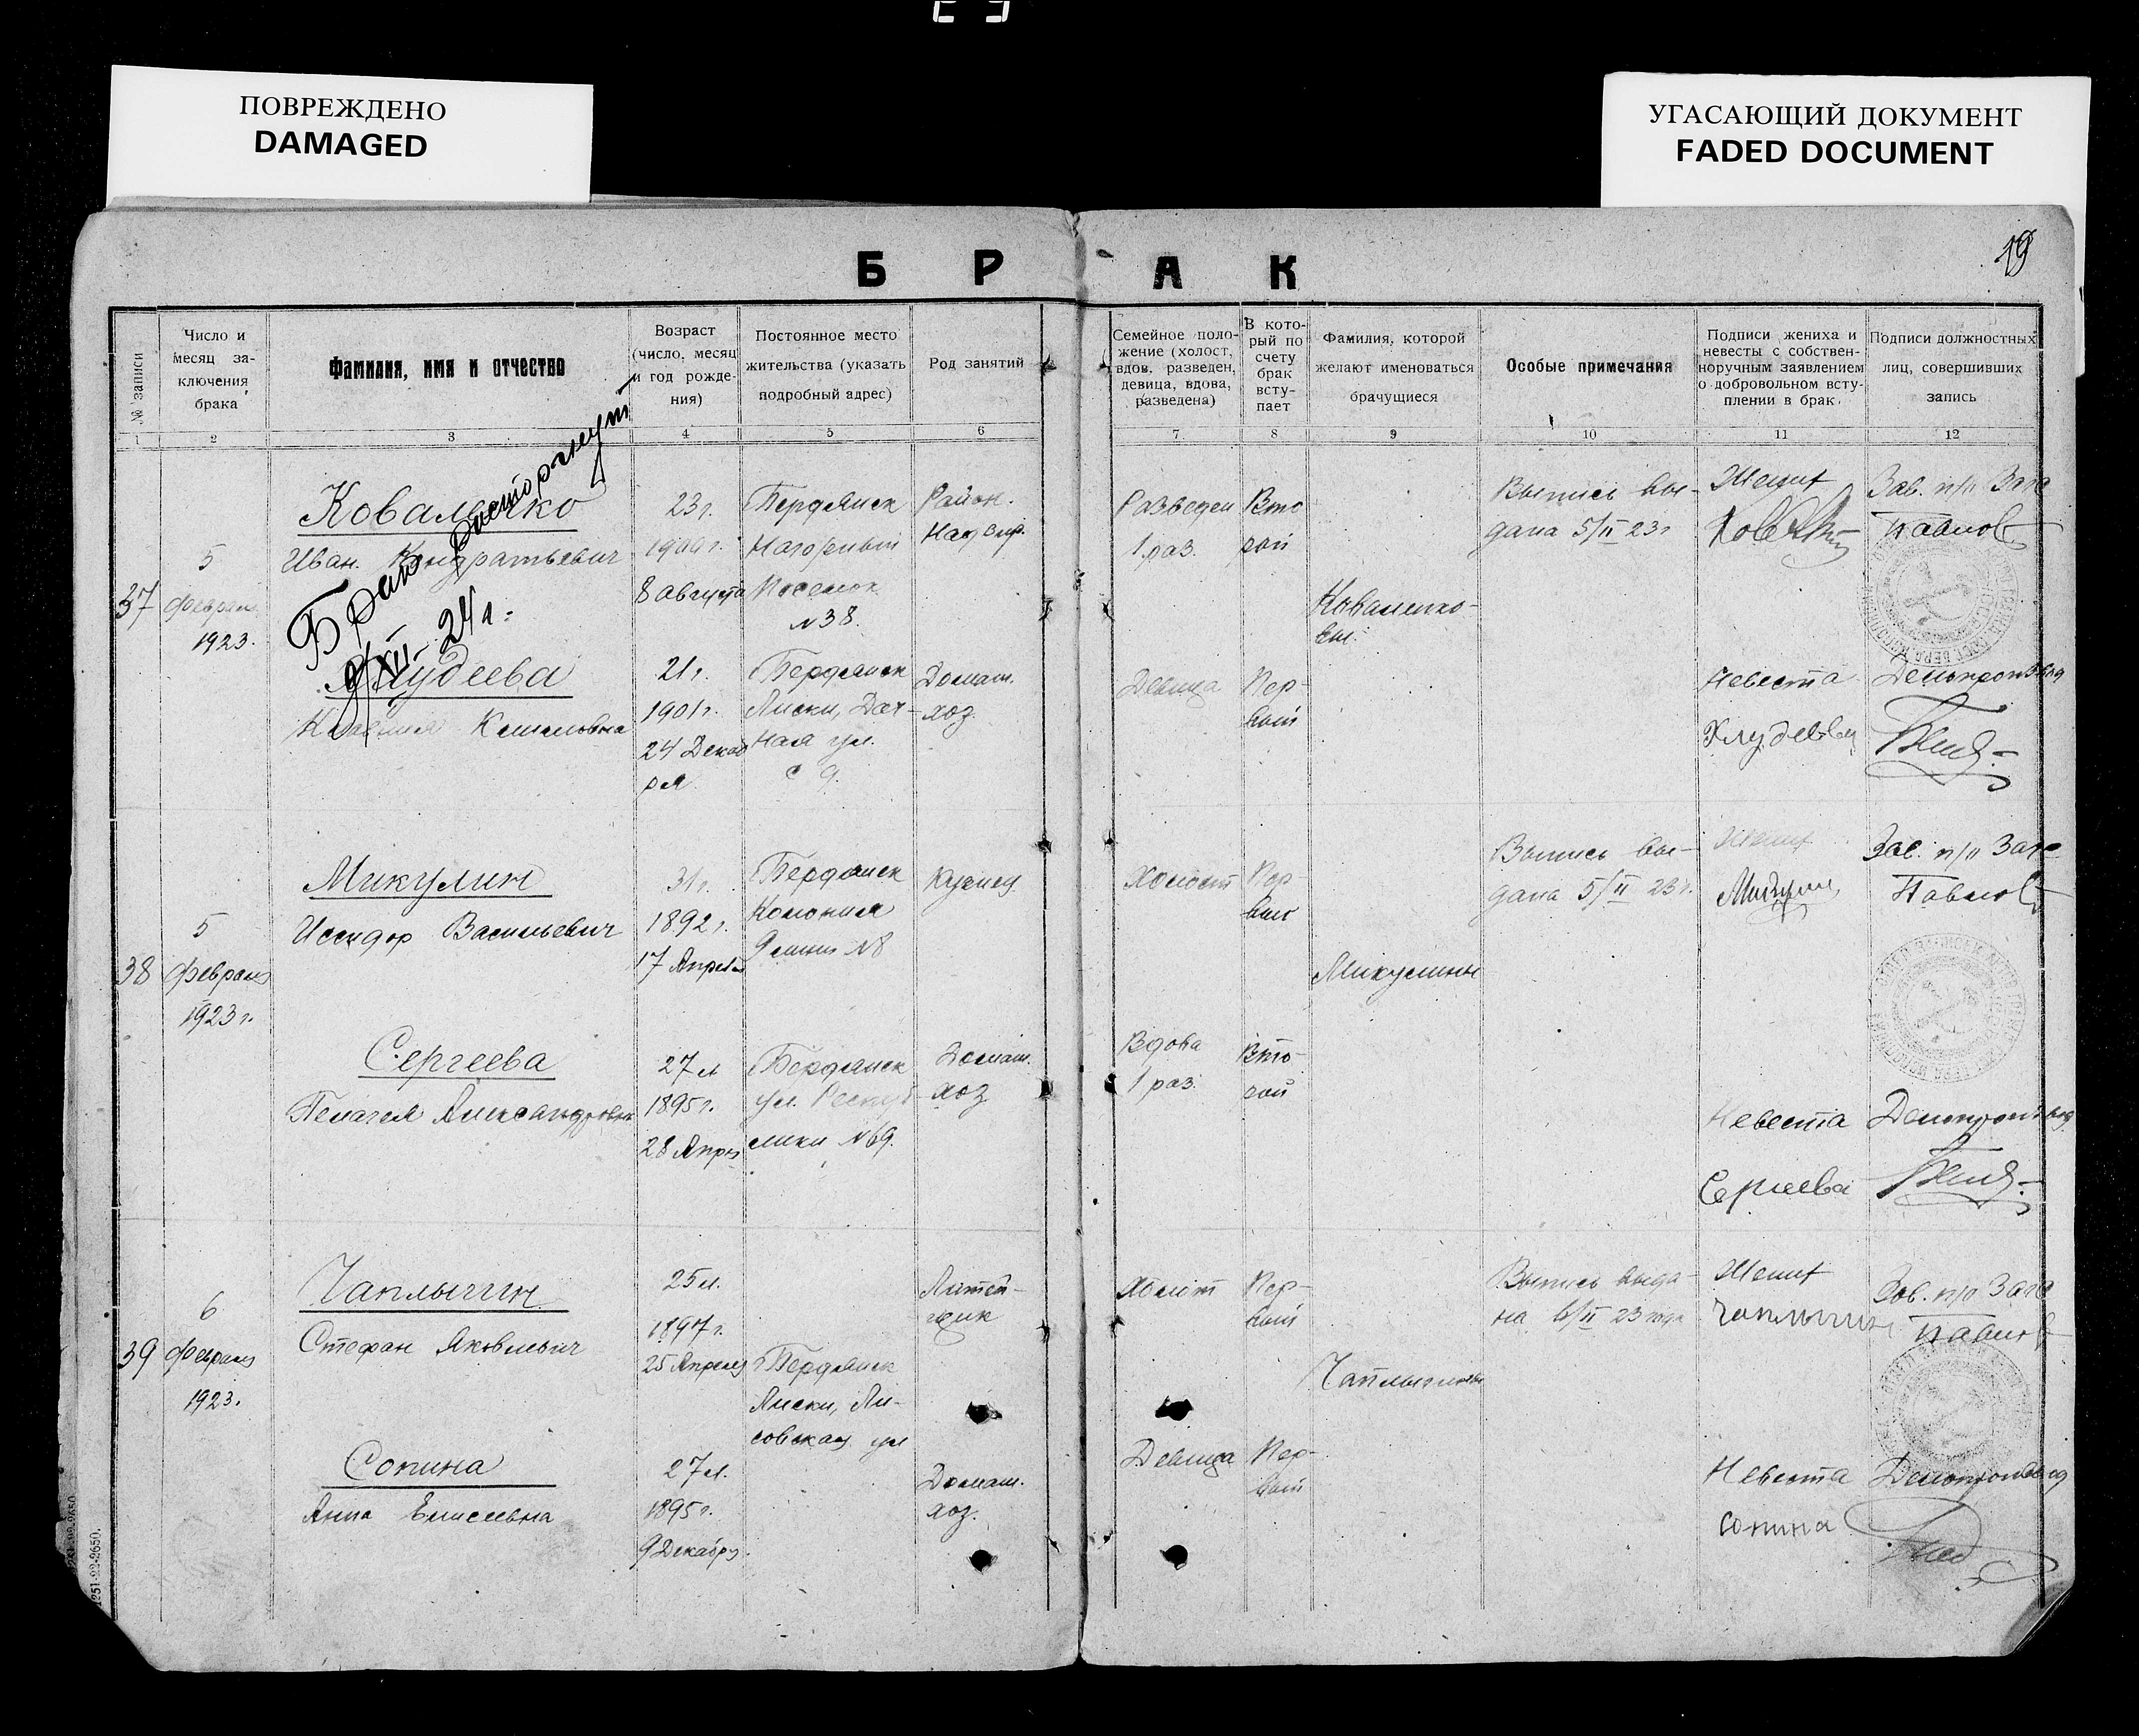 ПОВРЕЖДЕНО
DAMAGED
УГАСАЮЩИЙ ДОКУМЕНТ
FADED DOCUMENT
19
БРАК
№ записи
Число и
месяц за-
ключения
брака
Фамилия, имя и отчество
Возраст
(число, месяц
и год рожде-
ния)
Постоянное место
жительства (указать
подробный адрес)
Род занятий
Семейное поло-
жение (холост,
вдов, разведен,
девица, вдова,
разведена)
В кото-
рый по
счету
брак
всту-
пает
Фамилия, которой
желают именоваться
брачущиеся
Особые примечания
Подписи жениха и
невесты с собствен-
норучным заявлением
о добровольном всту-
плении в брак.
Подписи должностных
лиц, совершивших
запись
1 2 3 4 5 6 7 8 9 10 11 12
37
5
февраля
1923.
Коваленко
Иван Кондратьевич
Брак расторгнут
XII 24 г.
23 г.
1900 г.
8 августа
Бердянск
Нагорный
Поселок
№ 38.
Район.
Разведен
1 раз.
Вто
рой
Коваленко-
вы.
Выпись вы-
дана 5/II 23 г
Жених
Зав. п/о Загс
Павлов
Хлудеева
21 г.
1901 г.
24 Декаб
ря
Бердянск
Лиски, Дач-
ная ул.
с 9.
Домаш.
хоз.
Девица
Пер-
вый
Невеста
Хлудеева
Делопроизвод
38
5
февраля
1923 г.
Микулин
Исидор Васильевич
31 г.
1892 г.
17 Апреля
Бердянск
Колония
9 линия № 8
Кузнец
Холост
Пер-
вый
Микулины
Выпись вы-
дана 5/II 23 г.
Жених
Микулин
Зав. п/о Загс
Павлов
Сергеева
Пелагея Александровна
27 л
1895 г.
28 Апрел
Бердянск
ул. Респуб-
лики № 69.
Домаш.
хоз.
Вдова
1 раз.
Вто-
рой
Невеста
Сергеева
Делопроизвод
39
6
февраля
1923.
Чаплыгин
Стефан Яковлевич
25 л.
1897 г.
25 Апреля
Бердянск
Лиски, Ли-
совская ул
Литей-
щик
Холост
Пер-
вый
Чаплыгины
Выпись выда-
на 6/II 23 года
Жених
Чаплыгин
Зав. п/о Загс
Павлов
Сопина
Анна Елисеевна
27 л.
1895 г.
9 Декабря
Домаш.
хоз.
Девица
Пер-
вый
Невеста
Сопина
Делопроизвод
1251-22-2650.